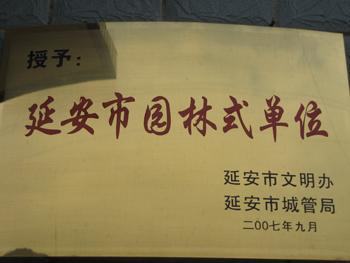 授予：
延安市园林式单位
延安市文明办
延安市城管局
二00七年九月